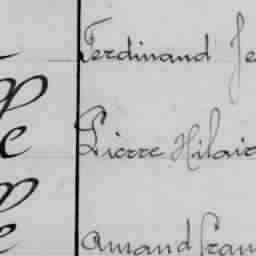 Ferdinand Je
Pierre Hilair
Amand Fran